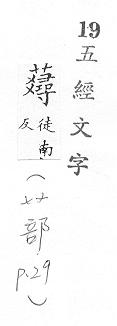 19五經文字
䕭徒南反
(艹部p.29)